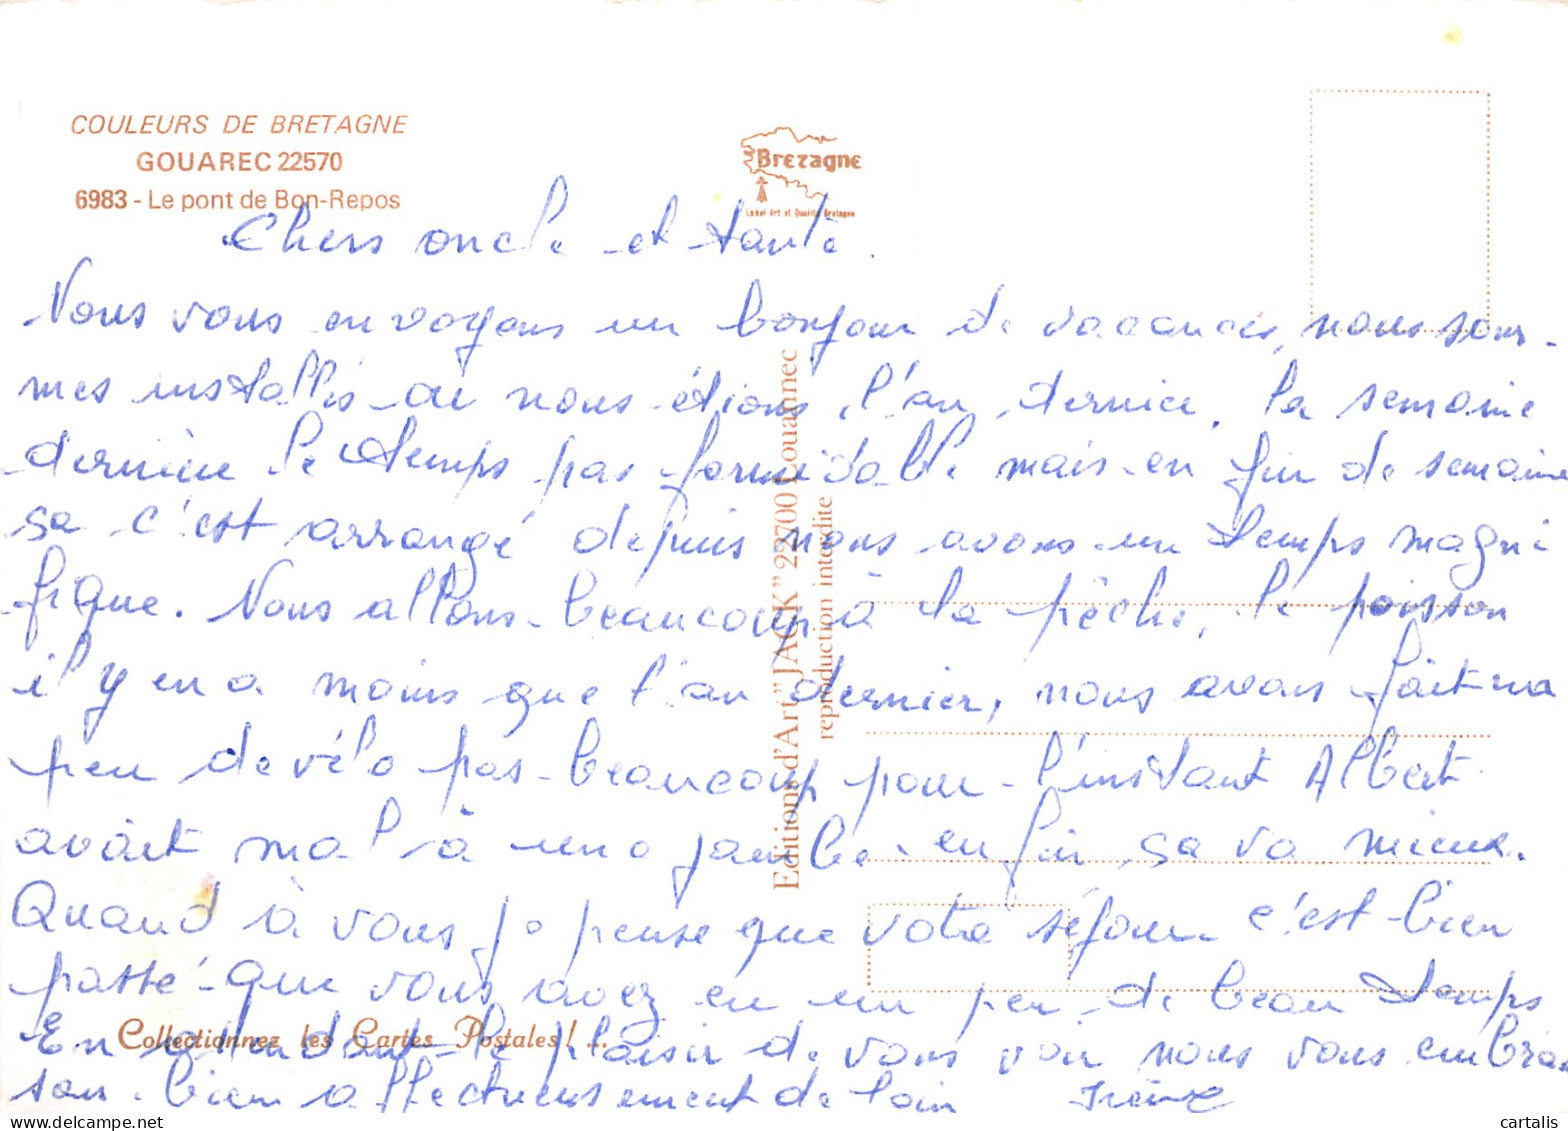 COULEURS DE BRETAGNE
GOUAREC 22570
6983 - Le pont de Bon-Repos
Bretagne
Label Art et Qualité Bretagne
Chers oncle et tante.
Nous vous envoyons un bonjour de vacances, nous som-
mes installés ou nous étions l'an dernier, la semaine
dernière le temps pas formidable mais en fin de semaine
sa c'est arrangé depuis nous avons un temps magni
fique. Nous allons beaucoup à la pêche, le poisson
il y en a moins que l'an dernier, nous avons fait un
peu de vélo pas beaucoup pour l'instant Albert
avait mal à une jambe enfin sa va mieux.
Quand à vous je pense que votre séjour c'est bien
passé que vous avez eu un peu de beau temps
En attendant le plaisir de vous voir nous vous embras
son bien affectueusement de loin Irène
Editions d'Art "JACK" 22700 Louannec
reproduction interdite
Collectionnez les Cartes Postales! ...
cartalis